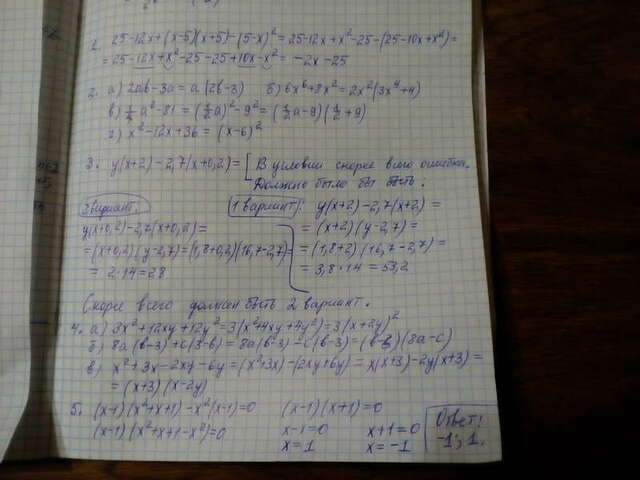 1. 25-12x+(x-5)(x+5)-(5-x)²=25-12x+x²-25-(25-10x+x²)=
=25-12x+x²-25-25+10x-x²= -2x-25
2. а) 2ab-3a=a(2b-3) б) 6x⁶+8x²=2x²(3x⁴+4)
в) 1/4 a²-81=(1/2 a)²-9²=(1/2 a-9)(1/2+9)
г) x²-12x+36=(x-6)²
3. y(x+2)-2,7(x+0,2)= В условии скорее всего ошибка.
Должно было бы быть:
2 вариант. 1 вариант): y(x+2)-2,7(x+2)=
y(x+0,2)-2,7(x+0,2)= =(x+2)(y-2,7)=
=(x+0,2)(y-2,7)=(1,8+0,2)(16,7-2,7)= =(1,8+2)(16,7-2,7)=
= 2·14=28 = 3,8·14=53,2
Скорее всего должен быть 2 вариант.
4. а) 3x²+12xy+12y²=3(x²+4xy+4y²)=3(x+2y)²
б) 8a(b-3)+c(3-b)=8a(b-3)-c(b-3)=(b-3)(8a-c)
в) x²+3x-2xy-6y=(x²+3x)-(2xy+6y)=x(x+3)-2y(x+3)=
=(x+3)(x-2y)
5. (x-1)(x²+x+1)-x²(x-1)=0 (x-1)(x+1)=0
(x-1)(x²+x+1-x²)=0 x-1=0 x+1=0
x=1 x=-1
Ответ:
-1; 1.